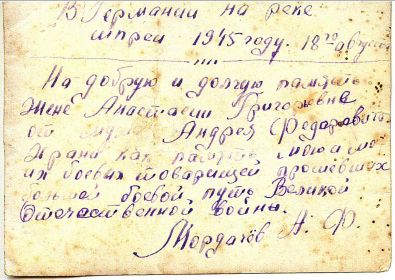 В Германии на реке
шпреи 1945 году. 18го августа
На добрую и долгую память
жене Анастасии Григорьевне
от мужа Андрея Федаровича
Храни как память мою и мо
их боевых товарищей прошевших
большой боевой путь Великой
Отечественной войны.
Мордачёв А. Ф.